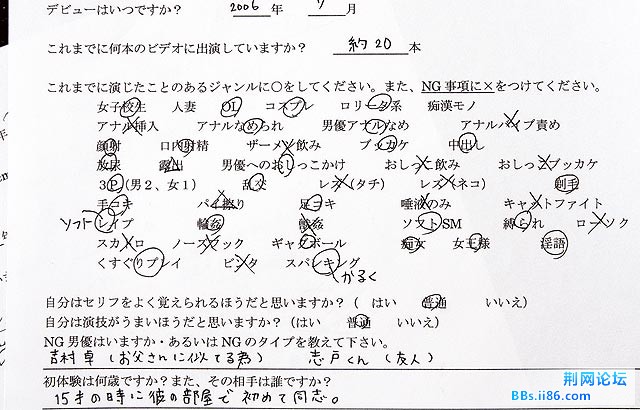 デビューはいつですか？ 2006 年 7 月
これまでに何本のビデオに出演していますか？ 約20 本
これまでに演じたことのあるジャンルに○をしてください。また、NG事項に×をつけてください。
女子校生 人妻 OL コスプレ ロリータ系 痴漢モノ
アナル挿入 アナルなめられ 男優アナルなめ アナルバイブ責め
顔射 口内射精 ザーメン飲み ブッカケ 中出し
放尿 露出 男優へのおしっこかけ おしっこ飲み おしっこブッカケ
3P(男2、女1) 乱交 レズ(タチ) レズ(ネコ)
手コキ パイ擦り 足コキ 唾液のみ キャットファイト
ソフト レイプ 輪姦 獣姦 ソフトSM 縛られ ローソク
スカトロ ノーズフック ギャグボール 痴女 女王様 淫語
くすぐりプレイ ビンタ スパンキング
かるく
自分はセリフをよく覚えられるほうだと思いますか？( はい 普通 いいえ)
自分は演技がうまいほうだと思いますか？(はい 普通 いいえ)
NG男優はいますか・あるいはNGのタイプを教えて下さい。
吉村卓(お父さんに似てる為) 志戸くん(友人)
初体験は何歳ですか？また、その相手は誰ですか？
15才の時に彼の部屋で初めて同志。
荆网论坛
BBs.ii86.com